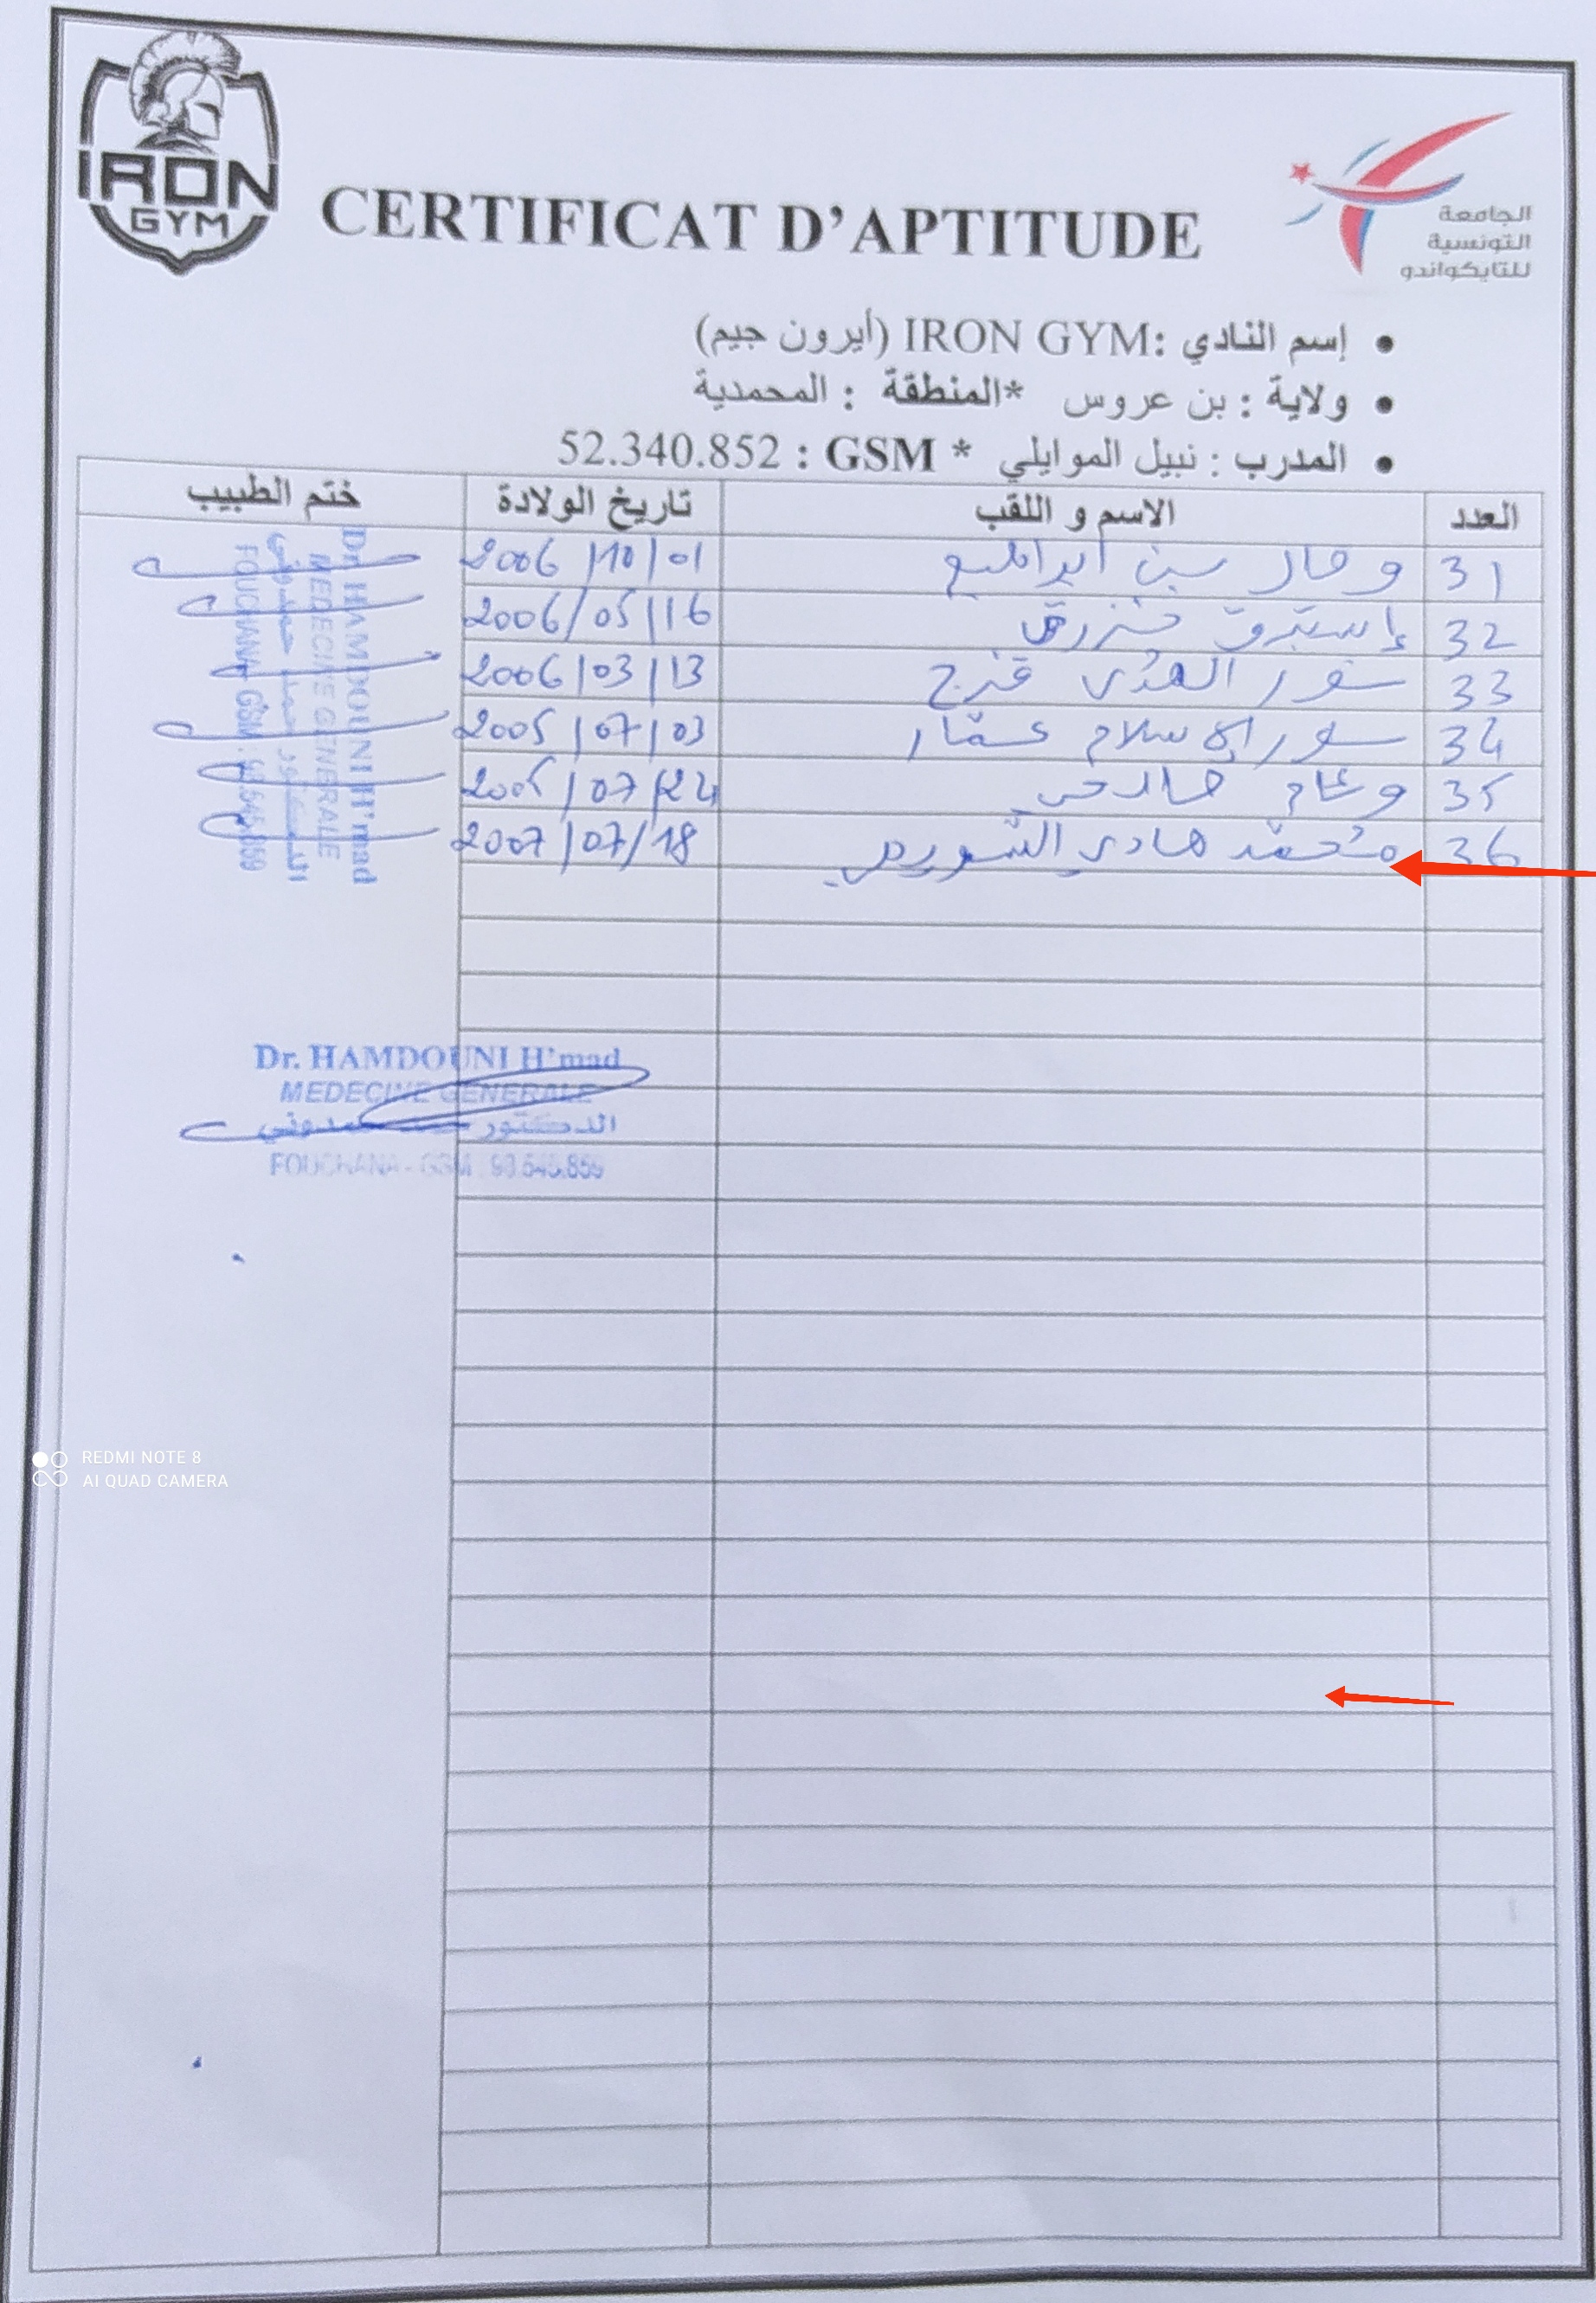 IRON
GYM
CERTIFICAT D'APTITUDE
الجامعة
التونسية
للتايكواندو
• إسم النادي :IRON GYM (أيرون جيم)
• ولاية : بن عروس *المنطقة : المحمدية
• المدرب : نبيل الموايلي * GSM : 52.340.852
العدد الاسم و اللقب تاريخ الولادة ختم الطبيب
31 بن ابراهيم 2006/10/01
32 إستبرق 2006/05/16
33 نور الهدى فرج 2006/03/13
34 نور الإسلام عمّار 2005/07/03
35 وئام 2005/07/24
36 مُحمّد هادي 2007/07/18
Dr. HAMDOUNI H'mad
MEDECINE GENERALE
الدكتور حمد حمدوني
FOUCHANA - GSM : 98.545.859
Dr. HAMDOUNI H'mad
MEDECINE GENERALE
الدكتور حمد حمدوني
FOUCHANA - GSM : 98.545.859
REDMI NOTE 8
AI QUAD CAMERA